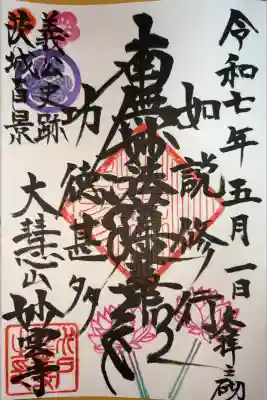 令和七年五月一日 奉拝之砌
如説修行
南無妙法蓮華経
功徳甚多
義公史跡
茨城百景
大慧山 妙雲寺